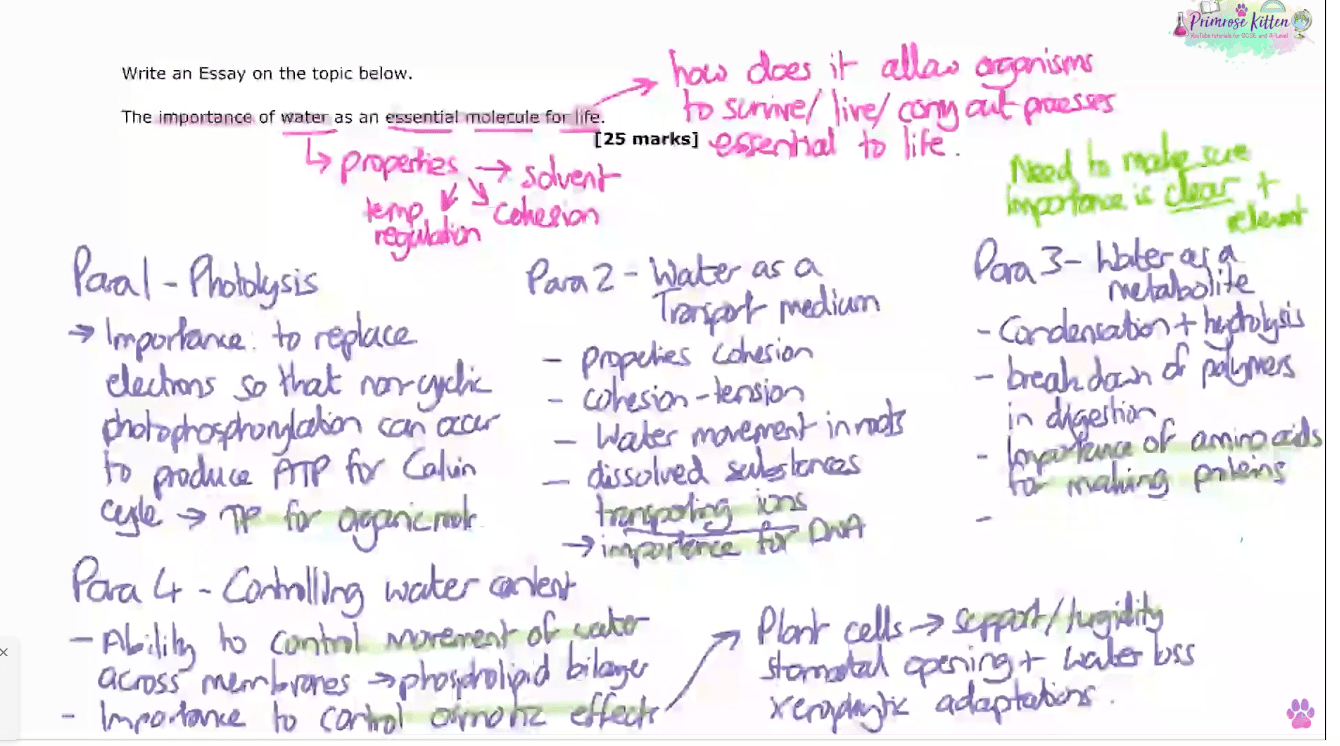 Primrose Kitten
YouTube tutorials for GCSE and A-Level
Write an Essay on the topic below.
The importance of water as an essential molecule for life.
[25 marks]
how does it allow organisms
to survive/ live/ carry out processes
essential to life.
↳ properties → solvent
cohesion
temp
regulation
Need to make sure
importance is clear +
relevant
Para 1 - Photolysis
→ Importance: to replace
electrons so that non-cyclic
photophosphorylation can occur
to produce ATP for Calvin
cycle → TP for organic mole
Para 2 - Water as a
Transport medium
- properties cohesion
- cohesion-tension
- Water movement in roots
- dissolved substances
transporting ions
→ importance for DNA
Para 3 - Water as a
metabolite
- Condensation + hydrolysis
- breakdown of polymers
in digestion
- Importance of amino acids
for making proteins
-
Para 4 - Controlling water content
- Ability to control movement of water
across membranes → phospholipid bilayer
- Importance to control osmotic effects
Plant cells → support/turgidity
stomatal opening + water loss
xerophytic adaptations.